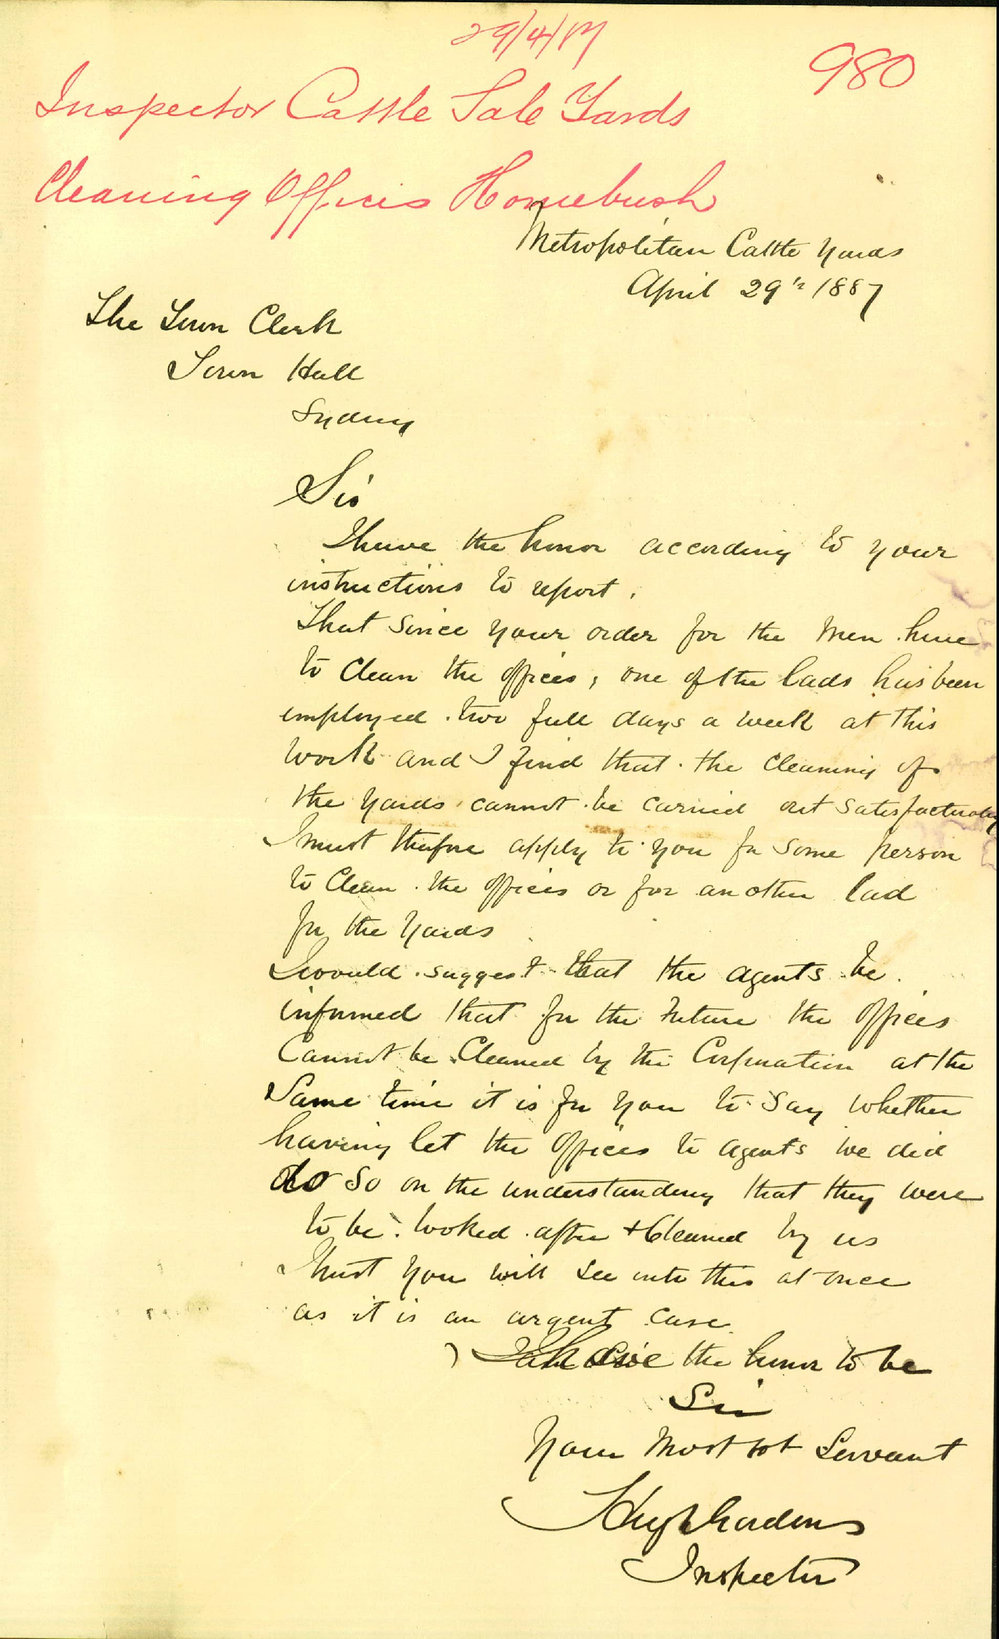 29/4/87
980
Inspector Cattle Sale Yards
Cleaning Offices Homebush
Metropolitan Cattle Yards
April 29th 1887
The Town Clerk
Town Hall
Sydney
Sir
I have the honor according to your
instructions to report.
That since your order for the men here
to clean the offices, one of the lads has been
employed two full days a week at this
work and I find that the cleaning of
the yards cannot be carried out satisfactorily
I must therefore apply to you for some person
to clean the offices or for another lad
for the yards
I would suggest that the agents be
informed that for the future the offices
cannot be cleaned by the Corporation at the
same time it is for you to say whether
having let the offices to agents we did
do so on the understanding that they were
to be looked after + cleaned by us
I trust you will see into this at once
as it is an urgent case
I have the honor to be
Sir
Your most obt Servant
Inspector